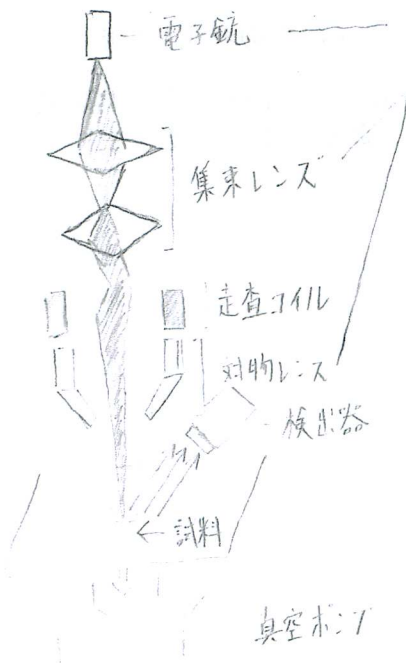 電子銃
集束レンズ
走査コイル
対物レンズ
検出器
試料
真空ポンプ